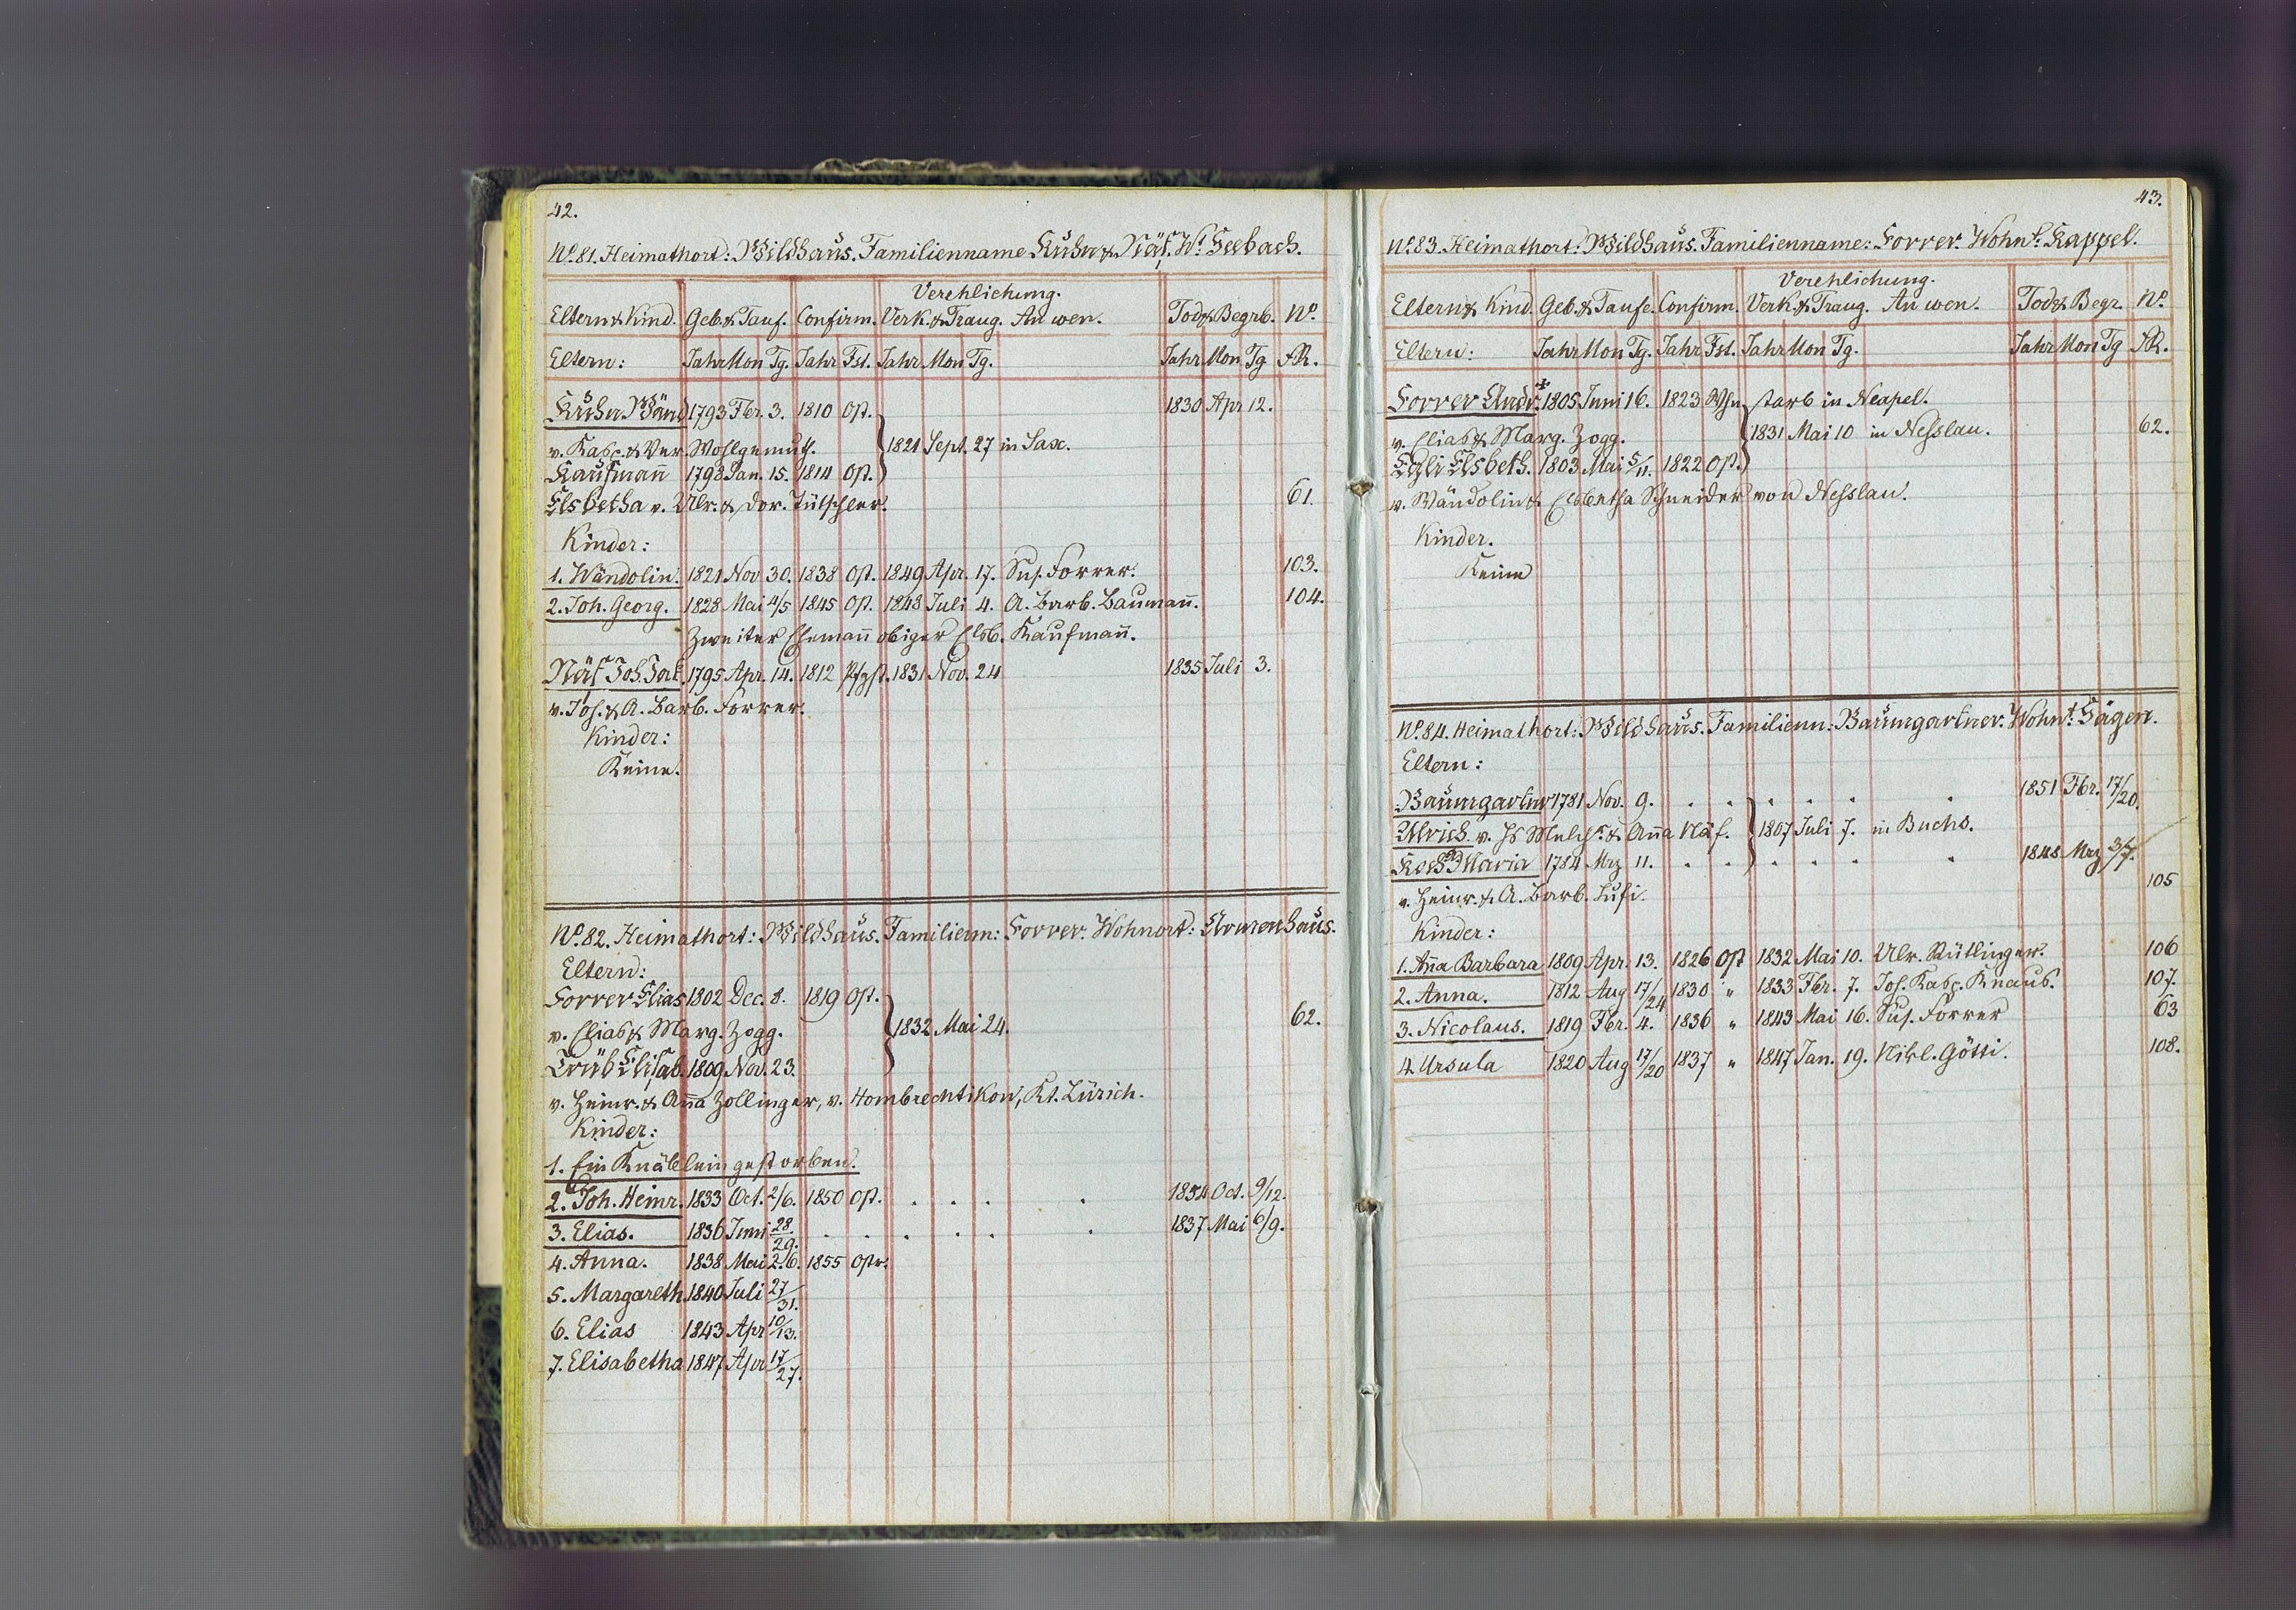 42.
No. 81. Heimathort: Wildhaus. Familienname Kuhn & Näf. Wt. Seebach.
Verehlichung.
Eltern & Kind. Geb. & Tauf. Confirm. Verk. & Traug. An wen. Tod & Begrb. No.
Eltern: Jahr Mon Tg. Jahr Fst. Jahr Mon Tg. Jahr Mon Tg FR.
1793 Fbr. 3. 1810 Ost. 1830 Apr 12.
v. Kasp. & Ver. Wohlgemuth. 1821 Sept. 27 in Sax.
Kaufmañ 1793 Jan. 15. 1814 Ost.
Elsbetha v. Ulr. & Dor. Tütschler. 61.
Kinder:
1. Wändolin. 1821 Nov 30. 1838 Ost. 1849 Apr. 17. Sus. Forrer. 103.
2. Joh. Georg. 1828 Mai 4/5 1845 Ost. 1848 Juli 4. A. Barb. Baumañ. 104.
Zweiter Ehemañ obiger Elsb. Kaufmañ.
Näf Joh. Jak. 1795 Apr. 14. 1812 Pfgst. 1831 Nov. 24 1835 Juli 3.
v. Jos. & A. Barb. Forrer.
Kinder:
Keine.
No. 82. Heimathort: Wildhaus. Familienn: Forrer. Wohnort: Armenhaus.
Eltern:
Forrer Elias 1802 Dec. 8. 1819 Ost.
v. Elias & Marg. Zogg. 1832 Mai 24. 62.
Trüb Elisab. 1809 Nov. 23.
v. Heinr. & Aña Zollinger, v. Hombrechtikon, Kt. Zürich.
Kinder:
1. Ein Knäblein gestorben.
2. Joh. Heinr. 1833 Oct. 2/6. 1850 Ost. . . . . 1854 Oct. 9/12.
3. Elias. 1836 Juni 28/29. . . . . . . 1837 Mai 6/9.
4. Anna. 1838 Mai 2/6. 1855 Ostr.
5. Margareth. 1840 Juli 27/31.
6. Elias 1843 Apr 10/13.
7. Elisabetha 1847 Apr 17/27.
43.
No. 83. Heimathort: Wildhaus. Familienname: Forrer. Wohnt. Kappel.
Verehlichung.
Eltern & Kind. Geb. & Taufe. Confirm. Verk. & Traug. An wen. Tod & Begr. No.
Eltern: Jahr Mon Tg. Jahr Fst. Jahr Mon Tg. Jahr Mon Tg FR.
Forrer Andr. 1805 Juni 16. 1823 Whn starb in Neapel.
v. Elias & Marg. Zogg. 1831 Mai 10 in Nesslau. 62.
Egli Elsbeth. 1803 Mai 5/11. 1822 Ost.
v. Wändolin & Elsbetha Schneider von Nesslau.
Kinder.
Keine
No. 84. Heimathort: Wildhaus. Familienn: Baumgartner. Wohnt. Gägen.
Eltern:
Baumgartner 1781 Nov. 9. . . . . . . 1851 Fbr. 17/20.
Ulrich v. Hs Melchr. & Aña Näf. 1807 Juli 7. in Buchs.
Maria 1784 Mrz 11. . . . . . . 1848 Mrz 3/7.
v. Heinr. & A. Barb. 105
Kinder:
1. Aña Barbara 1809 Apr. 13. 1826 Ost 1832 Mai 10. Ulr. Rütlinger. 106
2. Anna. 1812 Aug 17/24 1830 " 1833 Fbr. 7. Jos. Kasp. Knaus. 107.
3. Nicolaus. 1819 Fbr. 4. 1836 " 1843 Mai 16. Sus. Forrer 63
4. Ursula 1820 Aug 17/20 1837 " 1847 Jan. 19. Nikl. Götti. 108.